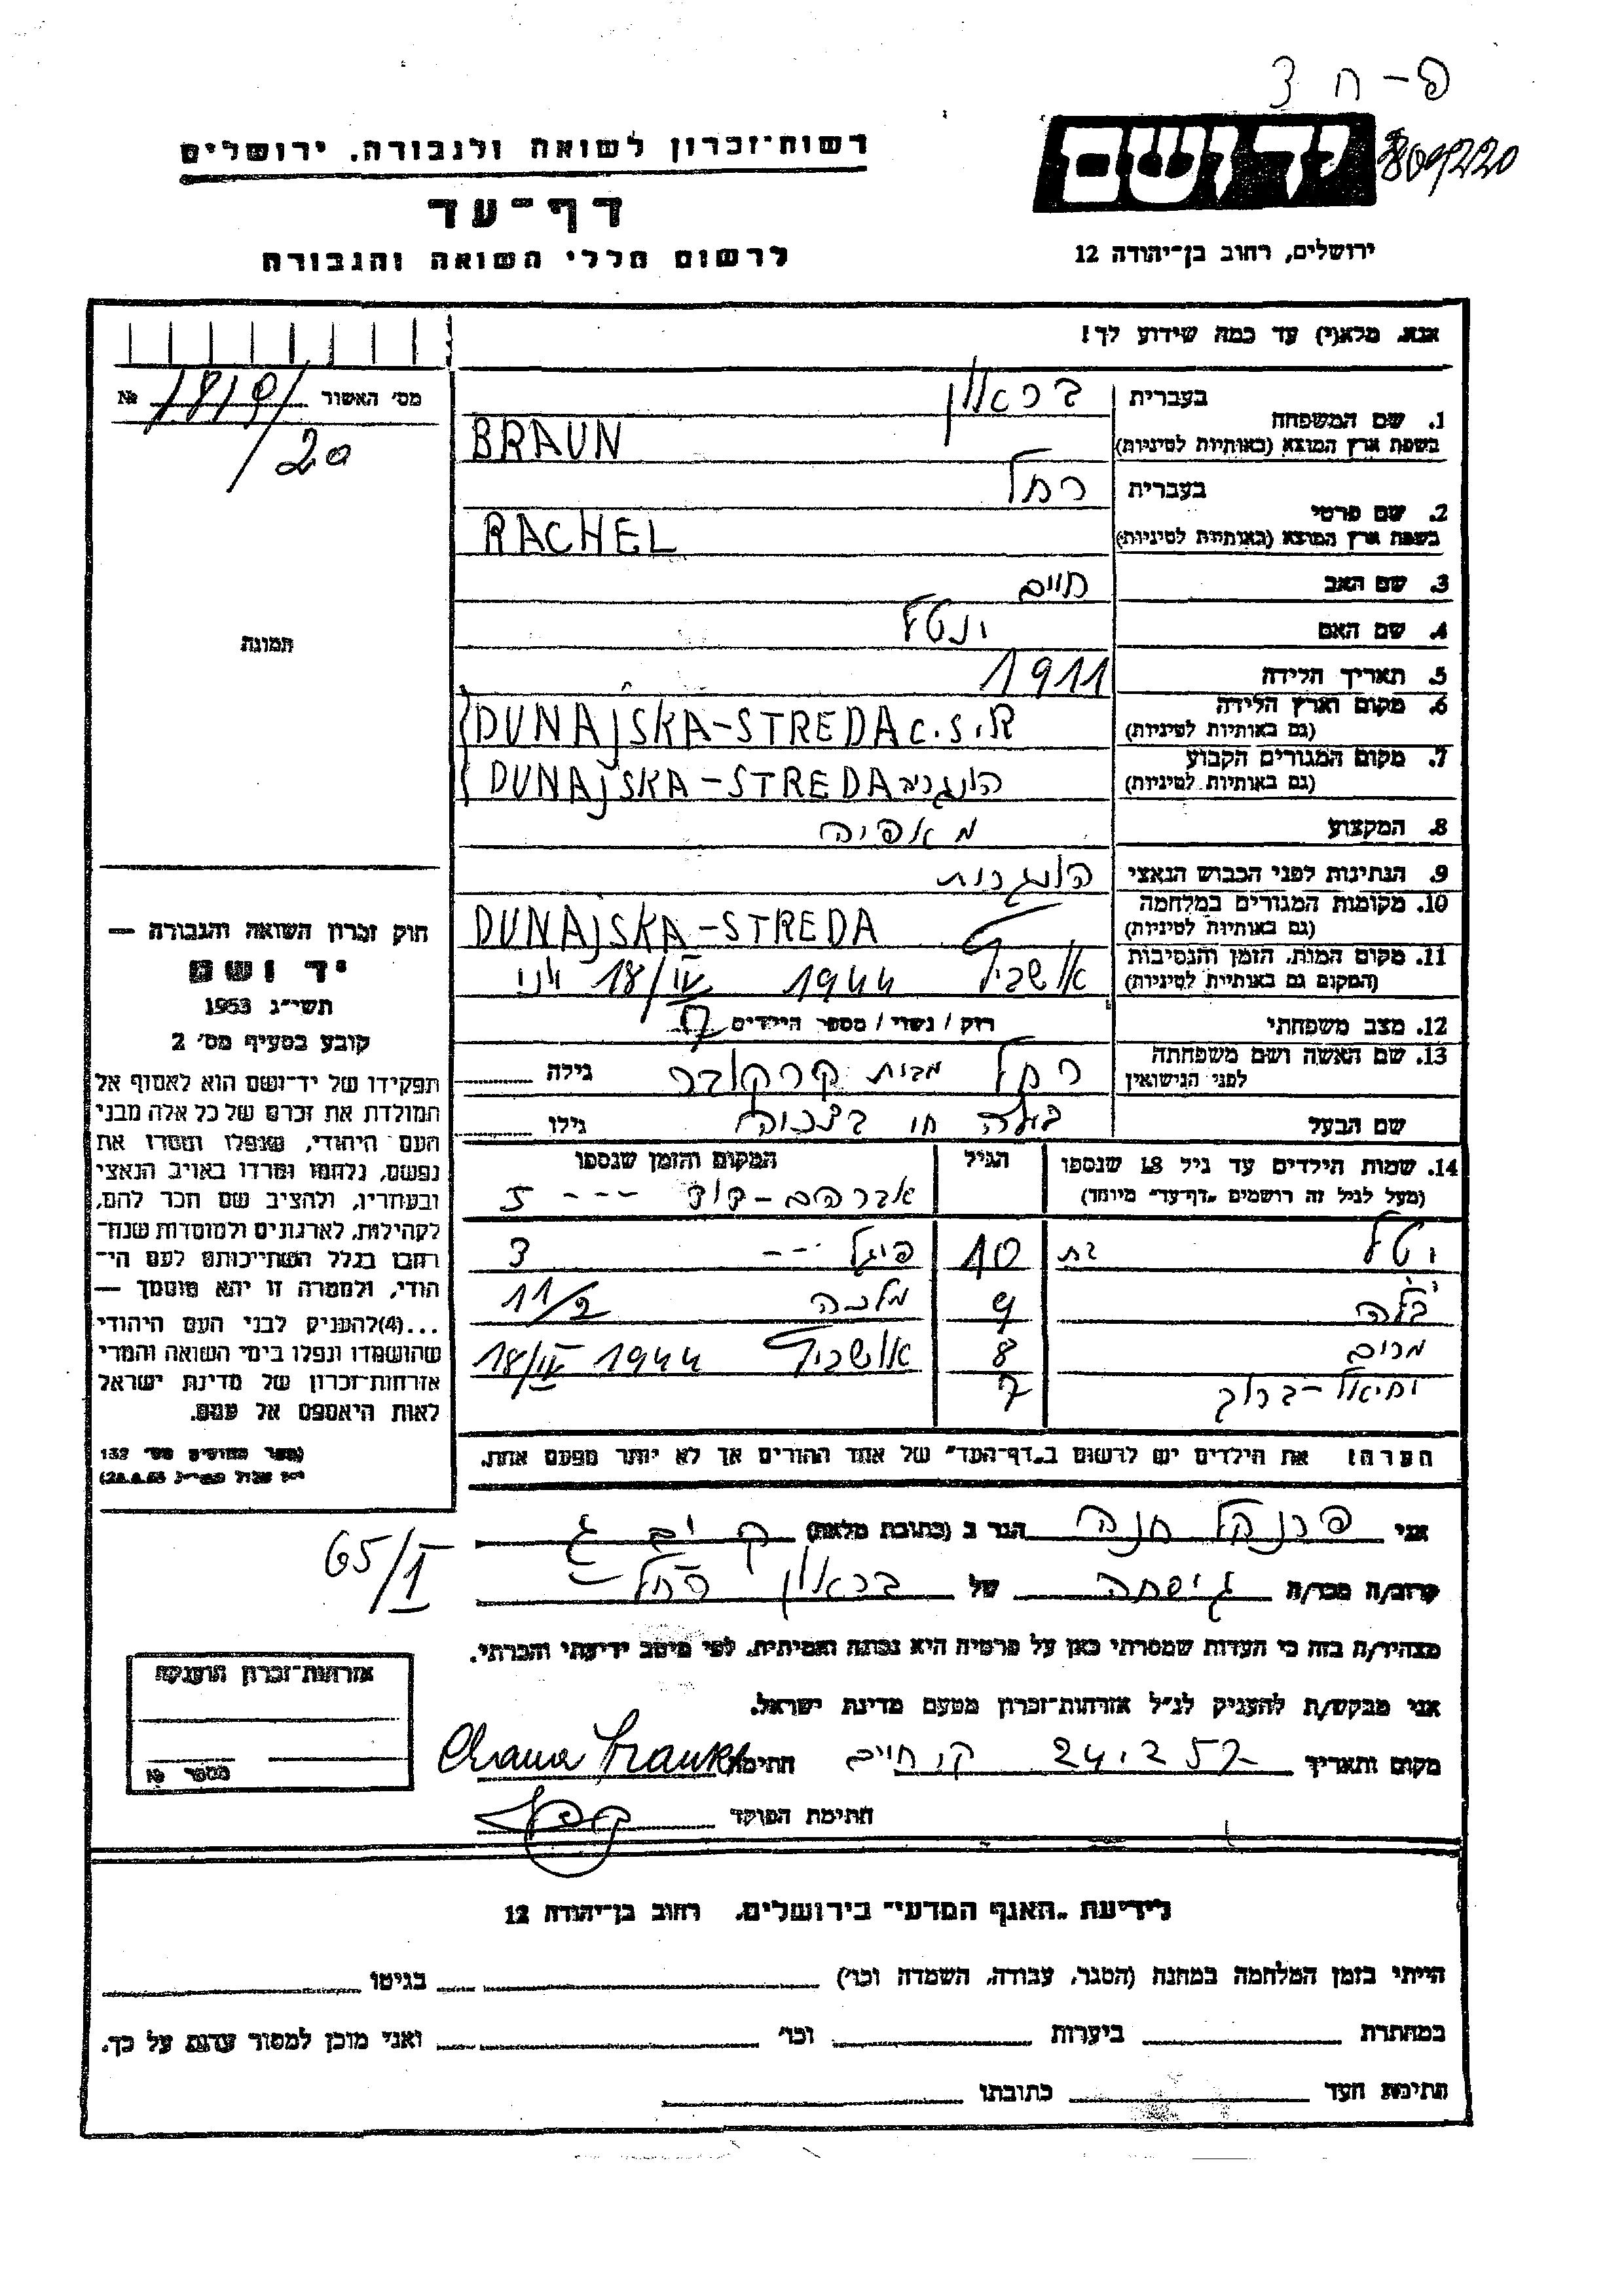 פ-ח 3
יד ושם
809220
ירושלים, רחוב בן־יהודה 12
רשות־זכרון לשואה ולגבורה. ירושלים
דף־עד
לרשום חללי השואה והגבורה
אנא, מלא(י) עד כמה שידוע לך!
מס׳ האשור № 1819/
/20
תמונה
1. שם המשפחה
בעברית בראון
בשפת ארץ המוצא (באותיות לטיניות) BRAUN
2. שם פרטי
בעברית רחל
בשפת ארץ המוצא (באותיות לטיניות) RACHEL
3. שם האב חיים
4. שם האם יטל
5. תאריך הלידה 1911
6. מקום וארץ הלידה DUNAJSKA-STREDA C.S.R
(גם באותיות לטיניות)
7. מקום המגורים הקבוע DUNAJSKA-STREDA הונגריה
(גם באותיות לטיניות)
8. המקצוע מאפיה
9. הנתינות לפני הכבוש הנאצי הונגרית
10. מקומות המגורים במלחמה DUNAJSKA-STREDA
(גם באותיות לטיניות)
11. מקום המות, הזמן והנסיבות אושביץ 1944 18/IV יוני
(המקום גם באותיות לטיניות)
12. מצב משפחתי רווק / נשוי / מספר הילדים 7
13. שם האשה ושם משפחתה רחל מבית קרקובר גילה
לפני הנישואין
שם הבעל בלה חי גילו
14. שמות הילדים עד גיל 18 שנספו הגיל המקום והזמן שנספו
(מעל לגיל זה רושמים "דף־עד" מיוחד) אברהם-דוד --- 5
יטל בת 10 פיגל --- 3
בלה 9 מלכה 11/2
מרים 8 אושביץ 1944 18/IV
יחיאל-ברוך 7
הערה: את הילדים יש לרשום ב"דף־העד" של אחד ההורים אך לא יותר מפעם אחת.
חוק זכרון השואה והגבורה —
יד ושם
תשי״ג 1953
קובע בסעיף מס׳ 2
תפקידו של יד־ושם הוא לאסוף אל
המולדת את זכרם של כל אלה מבני
העם היהודי, שנפלו ומסרו את
נפשם, נלחמו ומרדו באויב הנאצי
ובעוזריו, ולהציב שם וזכר להם,
לקהילות, לארגונים ולמוסדות שנח־
רבו בגלל השתייכותם לעם הי־
הודי, ולמטרה זו יהא מוסמך —
...(4)להעניק לבני העם היהודי
שהושמדו ונפלו בימי השואה והמרי
אזרחות־זכרון של מדינת ישראל
לאות היאספם אל עמם.
(ספר החוקים מס׳ 132
י״ז אלול תשי״ג 28.8.53)
65/I
אני פרנקל חנה הגר ב (כתובת מלאה) ק ים ג
קרוב/ה מכר/ה גיסתה של בראון רחל
מצהיר/ה בזה כי העדות שמסרתי כאן על פרטיה היא נכונה ואמיתית, לפי מיטב ידיעתי והכרתי.
אני מבקש/ת להעניק לנ״ל אזרחות־זכרון מטעם מדינת ישראל.
מקום ותאריך 24.2.57 ק. חיים חתימה Chana Frankl
חתימת הפוקד
אזרחות־זכרון הוענקה
מספר №
לידיעת "האגף המדעי" בירושלים. רחוב בן־יהודה 12
הייתי בזמן המלחמה במחנה (הסגר, עבודה, השמדה וכו׳) בגיטו
במחתרת ביערות וכו׳ ואני מוכן למסור עדות על כך.
חתימת העד כתובתו